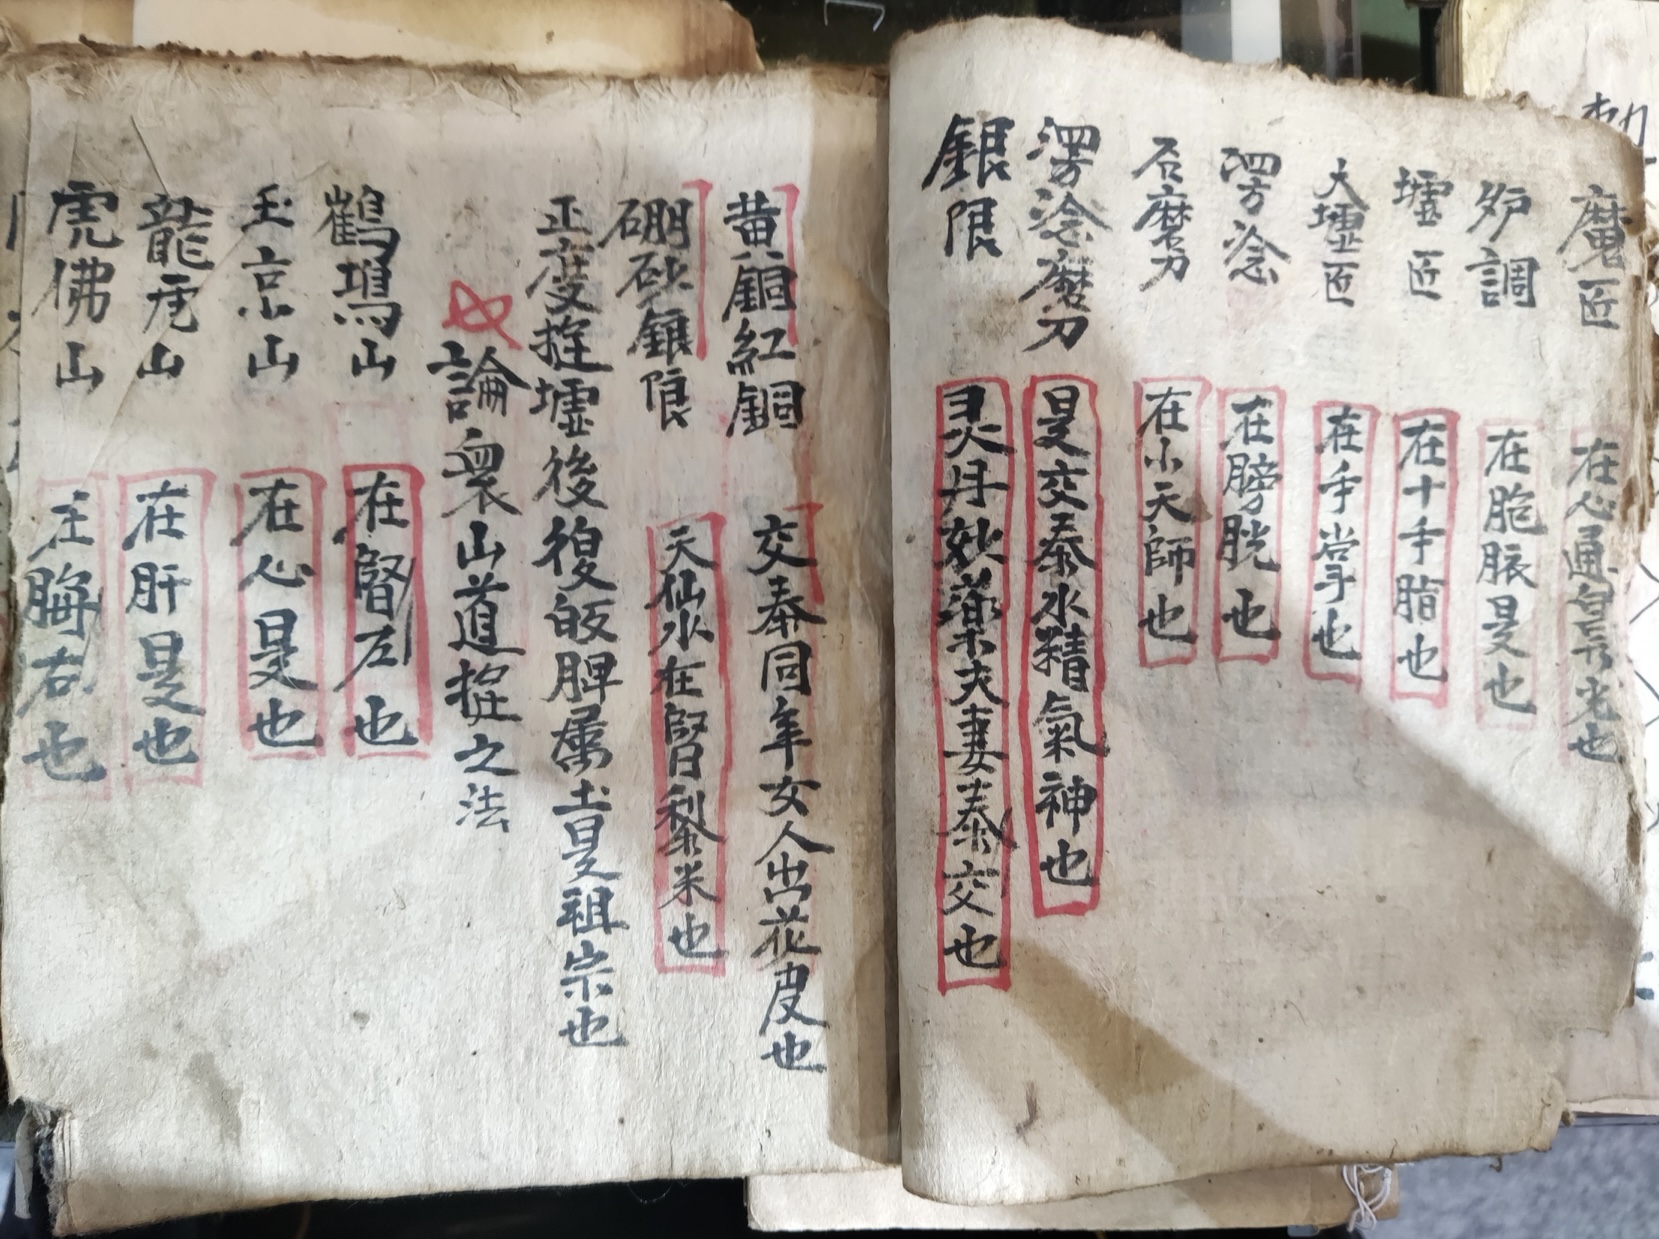 魔匠 在心通是官光也
炉調 在胞脤是也
墟匠 在十手脂也
大墟匠 在手掌也
澇淰 在膀胱也
石磨刀 在小天師也
澇淰磨刀 是交泰水精氣神也
銀限 灵丹妙藥夫妻泰交也
黄銅紅銅 交泰同年女人出花皮也
硼砂銀限 天仙水在腎黎米也
正度掟墟後復皈脾属土是祖宗也
論衆山道掟之法
鶴鳴山 在腎左也
玉京山 在心是也
龍虎山 在肝是也
虎佛山 在胸右也